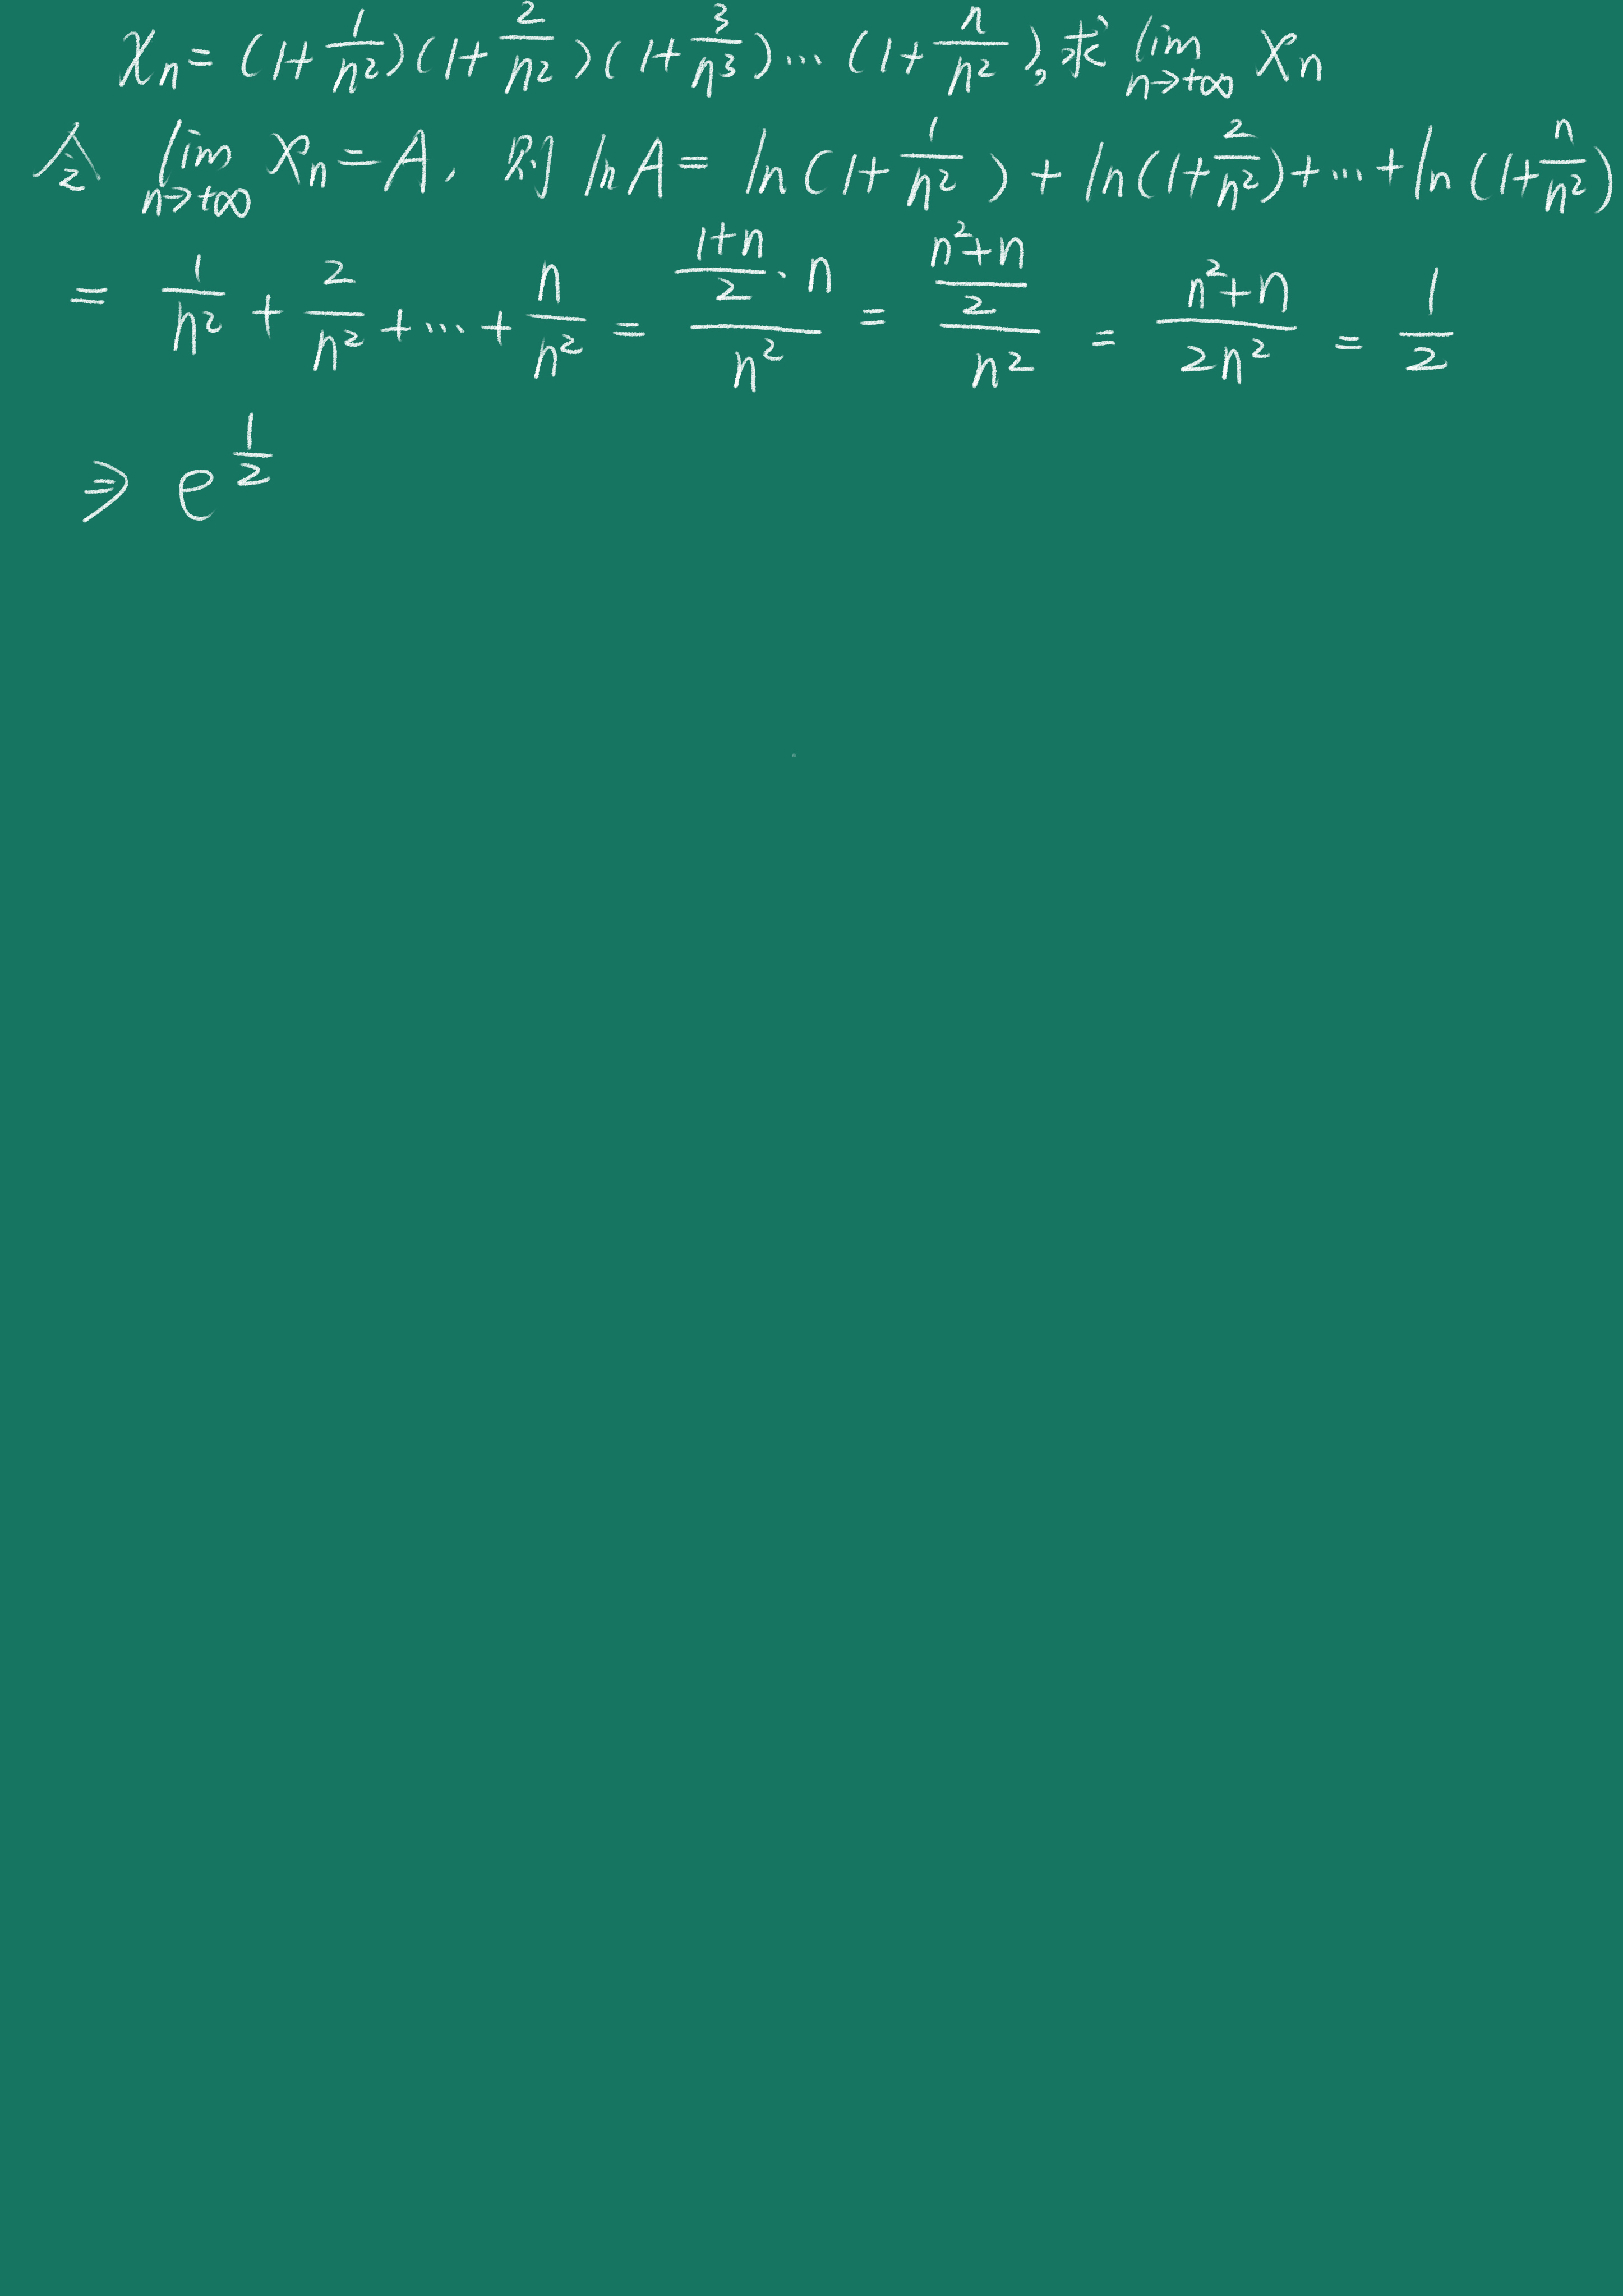 xₙ = (1+1/n²)(1+2/n²)(1+3/n³)…(1+n/n²), 求 lim_{n→+∞} xₙ
令 lim_{n→+∞} xₙ = A, 则 ln A = ln(1+1/n²) + ln(1+2/n²) + … + ln(1+n/n²)
= 1/n² + 2/n² + … + n/n² = ((1+n)/2 · n)/n² = ((n²+n)/2)/n² = (n²+n)/(2n²) = 1/2
⇒ e^(1/2)